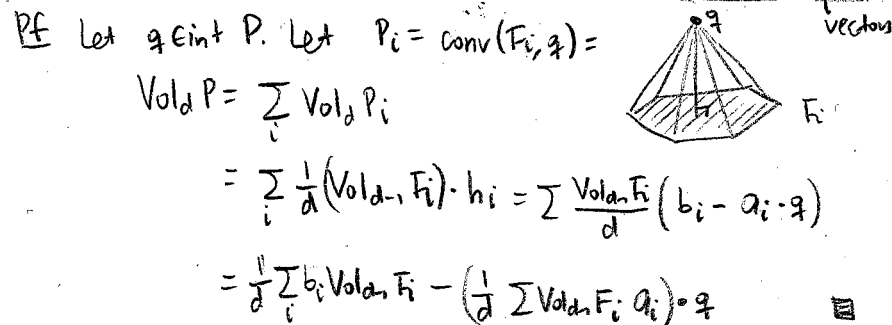 vectors
Pf Let q ∈ int P. Let Pᵢ = conv(Fᵢ, q) =
q
Fᵢ
Vol_d P = Σᵢ Vol_d Pᵢ
= Σᵢ 1/d (Vol_{d-1} Fᵢ) · hᵢ = Σ Vol_{d-1} Fᵢ / d (bᵢ - aᵢ · q)
= 1/d Σᵢ bᵢ Vol_{d-1} Fᵢ - (1/d Σ Vol_{d-1} Fᵢ aᵢ) · q